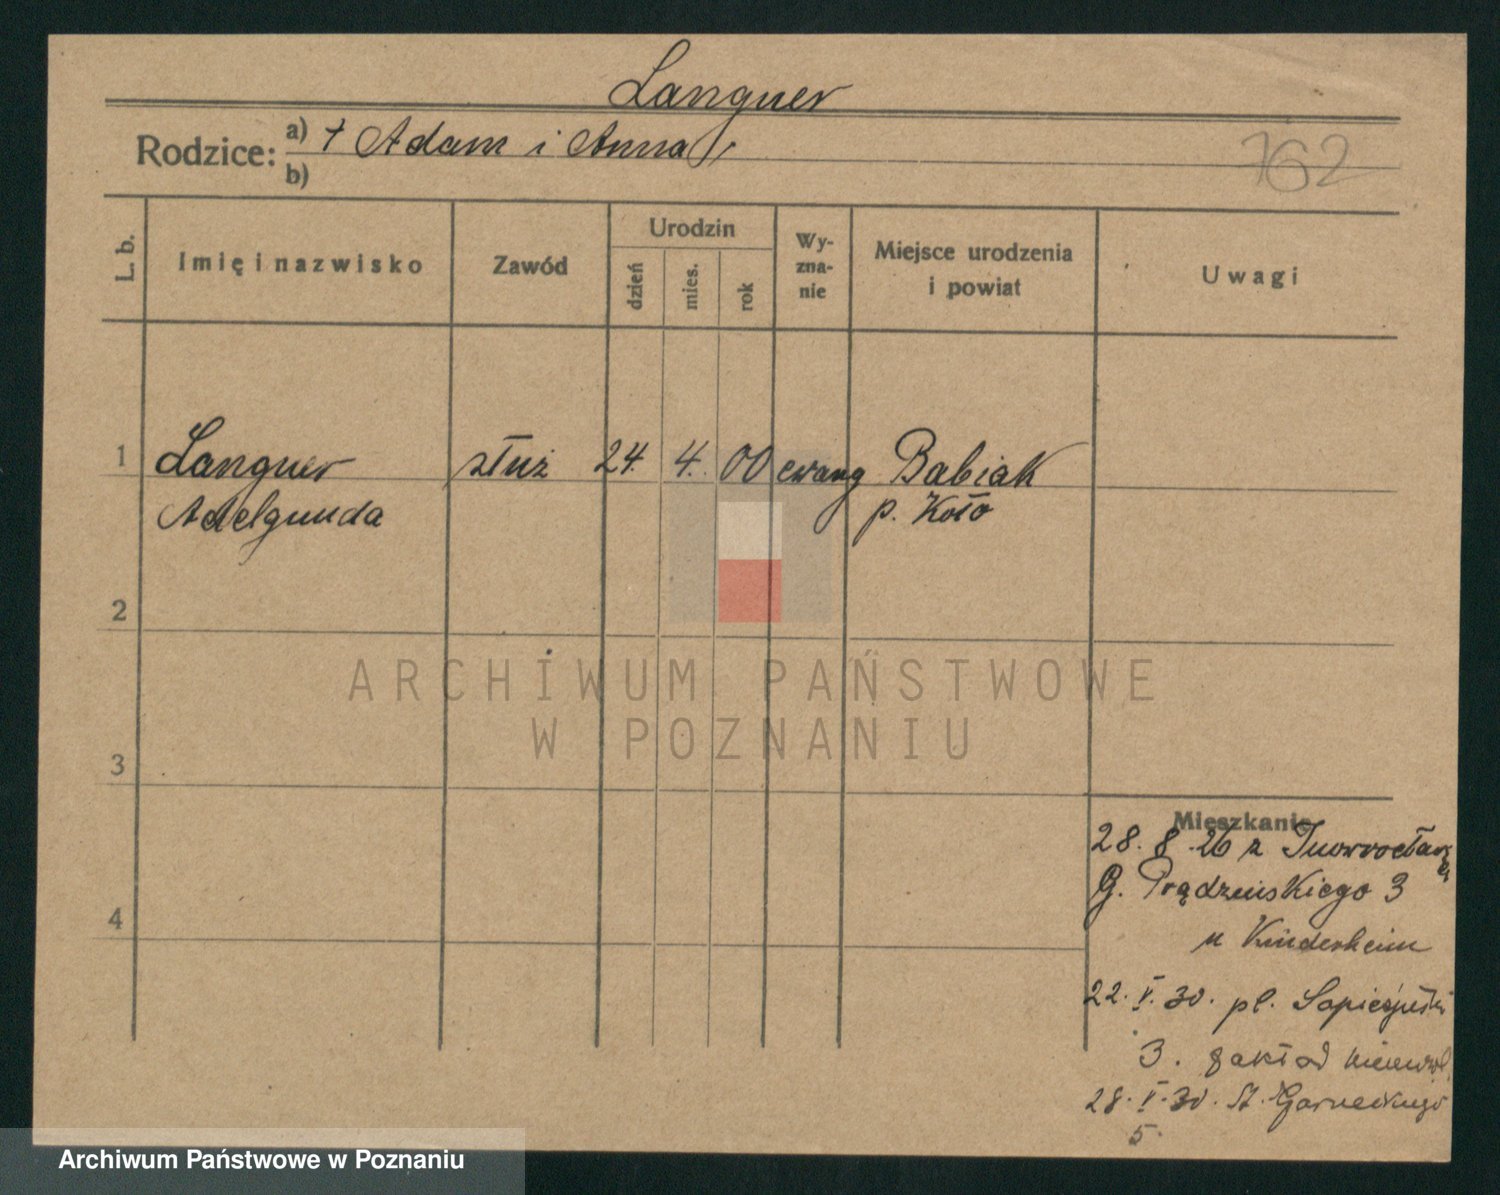 Languer
Rodzice: a) + Adam i Anna
b)
762
L. b.
Imię i nazwisko
Zawód
Urodzin
dzień
mies.
rok
Wy-
zna-
nie
Miejsce urodzenia
i powiat
Uwagi
1 Languer służ 24. 4. 00 ewang Babiak
Adelgunda p. Koło
2
3
4
Mieszkanie
28. 8. 26 z Inowrocławia
G. Prądzeńskiego 3
u Kinderheim
22. V. 30. pl. Sapieżyński
3. zakład
28. V. 30. St.
5
ARCHIWUM PAŃSTWOWE
W POZNANIU
Archiwum Państwowe w Poznaniu